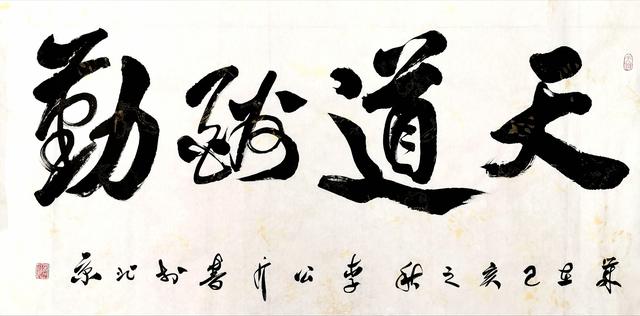 天道酬勤
歲在己亥之秋李公書於北京